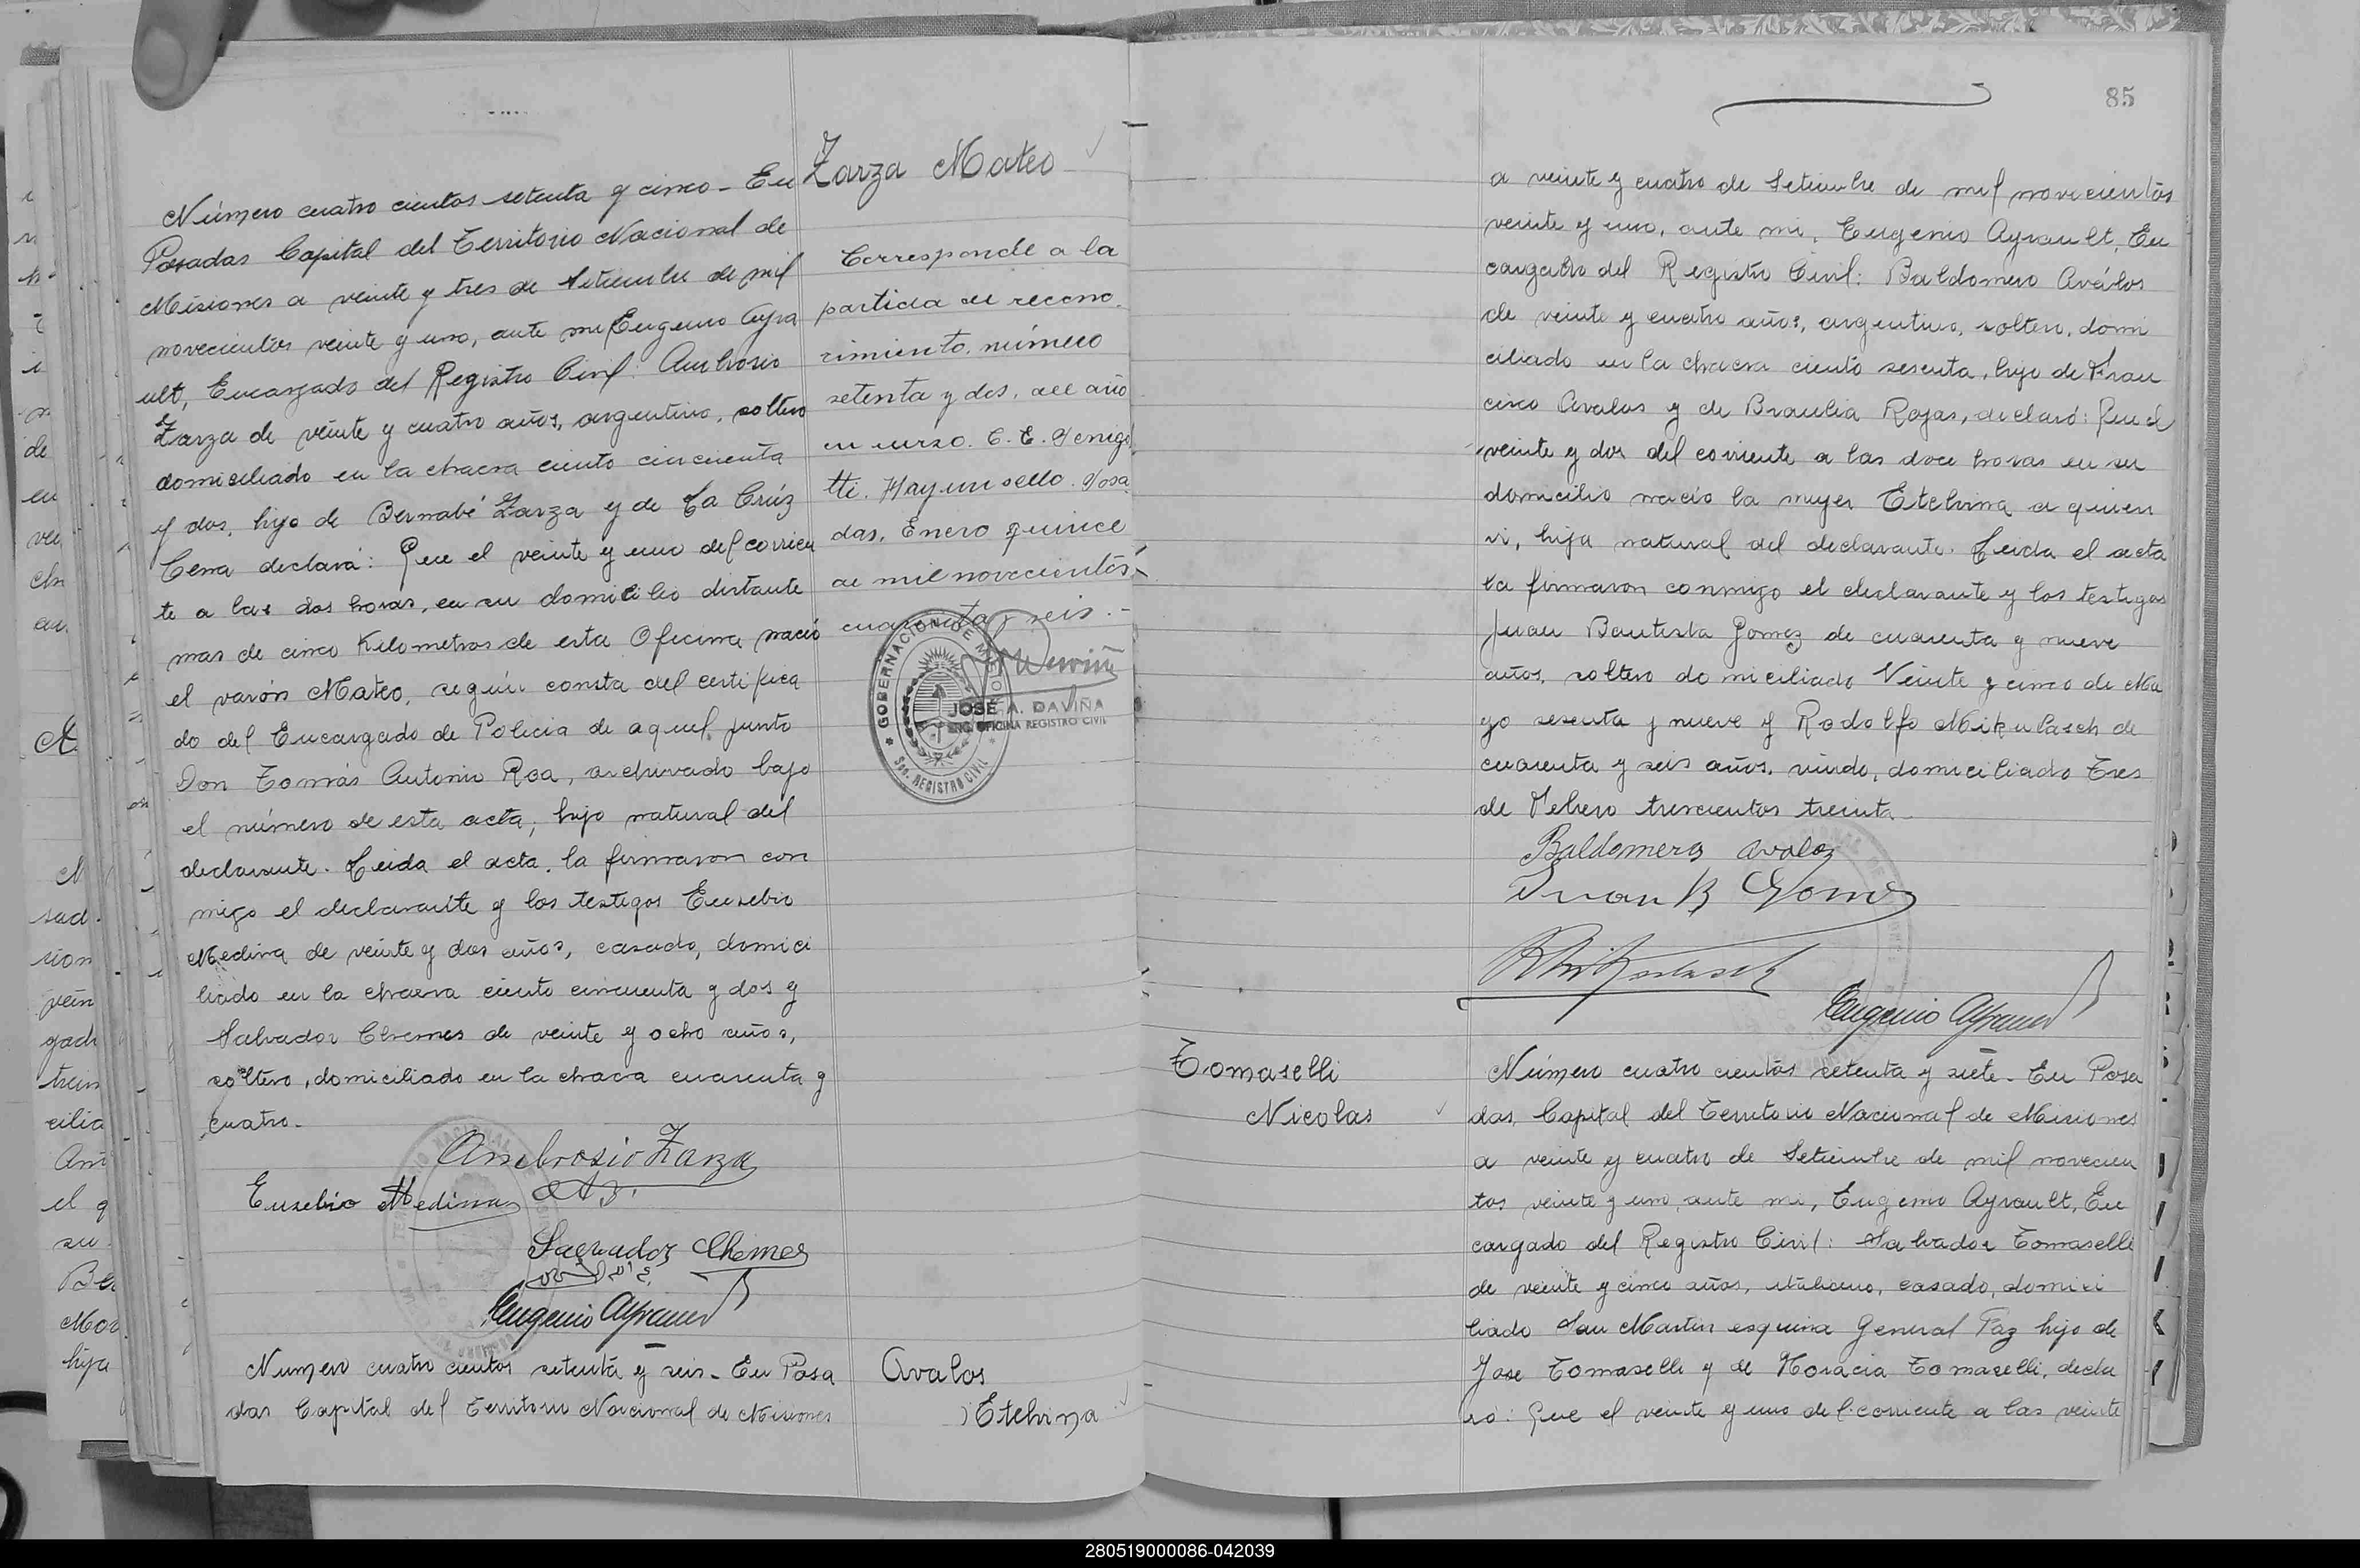 Zarza Mateo
Número cuatro cientos setenta y cinco - En
Posadas Capital del Territorio Nacional de
Misiones a veinte y tres de Setiembre de mil
novecientos veinte y uno, ante mi Eugenio Ayra
ult, Encargado del Registro Civil: Ambrosio
Zarza de veinte y cuatro años, argentino, soltero
domiciliado en la chacra ciento cincuenta
y dos, hijo de Bernabé Zarza y de La Crúz
declará: Que el veinte y uno del corrien
te a las dos horas, en su domicilio distante
mas de cinco Kilometros de esta Oficina nació
el varón Mateo, según consta del certifica
do del Encargado de Policia de aquel punto
Don Tomás Antonio Roa, archivado bajo
el número de esta acta, hijo natural del
declarante. Leida el acta, la firmaron con
migo el declarante y los testigos Eusebio
Medina de veinte y dos años, casado, domici
liado en la chacra ciento cincuenta y dos y
Salvador Chemes de veinte y ocho años,
soltero, domiciliado en la chacra cuarenta y
cuatro.
Ambrosio Zarza
Eusebio Medina
Salvador Chemes
Eugenio Ayrault
Corresponde a la
partida de recono
cimiento, número
setenta y dos, del año
en curso. C. E.
tti. Hay un sello. Posa
das, Enero quince
de mil novecientos
cuarenta y seis.-
GOBERNACION DE MISIONES
JOSÉ A. DAVIÑA
ENC. OFICINA REGISTRO CIVIL
Sec. REGISTRO CIVIL
Numero cuatro cientos setenta y seis - En Posa
das Capital del Territorio Nacional de Misiones
Avalos
Etelvina
85
a veinte y cuatro de Setiembre de mil novecientos
veinte y uno, ante mi, Eugenio Ayrault, En
cargado del Registro Civil: Baldomero Aválos
de veinte y cuatro años, argentino, soltero, domi
ciliado en la chacra ciento sesenta, hijo de Fran
cisco Avalos y de Braulia Rojas, declaró: Que el
veinte y dos del corriente a las doce horas en su
domicilio nació la mujer Etelvina a quien
vi, hija natural del declarante. Leida el acta
la firmaron conmigo el declarante y los testigos
Juan Bautista Gomez de cuarenta y nueve
años, soltero domiciliado Veinte y cinco de Ma
yo sesenta y nueve y Rodolfo Mikulasch de
cuarenta y seis años, viudo, domiciliado Tres
de Febrero trescientos treinta.
Baldomero Avaloz
Juan B Gomez
R Mikulasch
Eugenio Ayrault
Tomaselli
Nicolas
Número cuatro cientos setenta y siete - En Posa
das, Capital del Territorio Nacional de Misiones
a veinte y cuatro de Setiembre de mil novecien
tos veinte y uno, ante mi, Eugenio Ayrault, En
cargado del Registro Civil: Salvador Tomaselli
de veinte y cinco años, italiano, casado, domici
liado San Martin esquina General Paz hijo de
Jose Tomaselli y de Horacia Tomaselli, decla
ró: Que el veinte y uno del corriente a las veinte
280519000086-042039